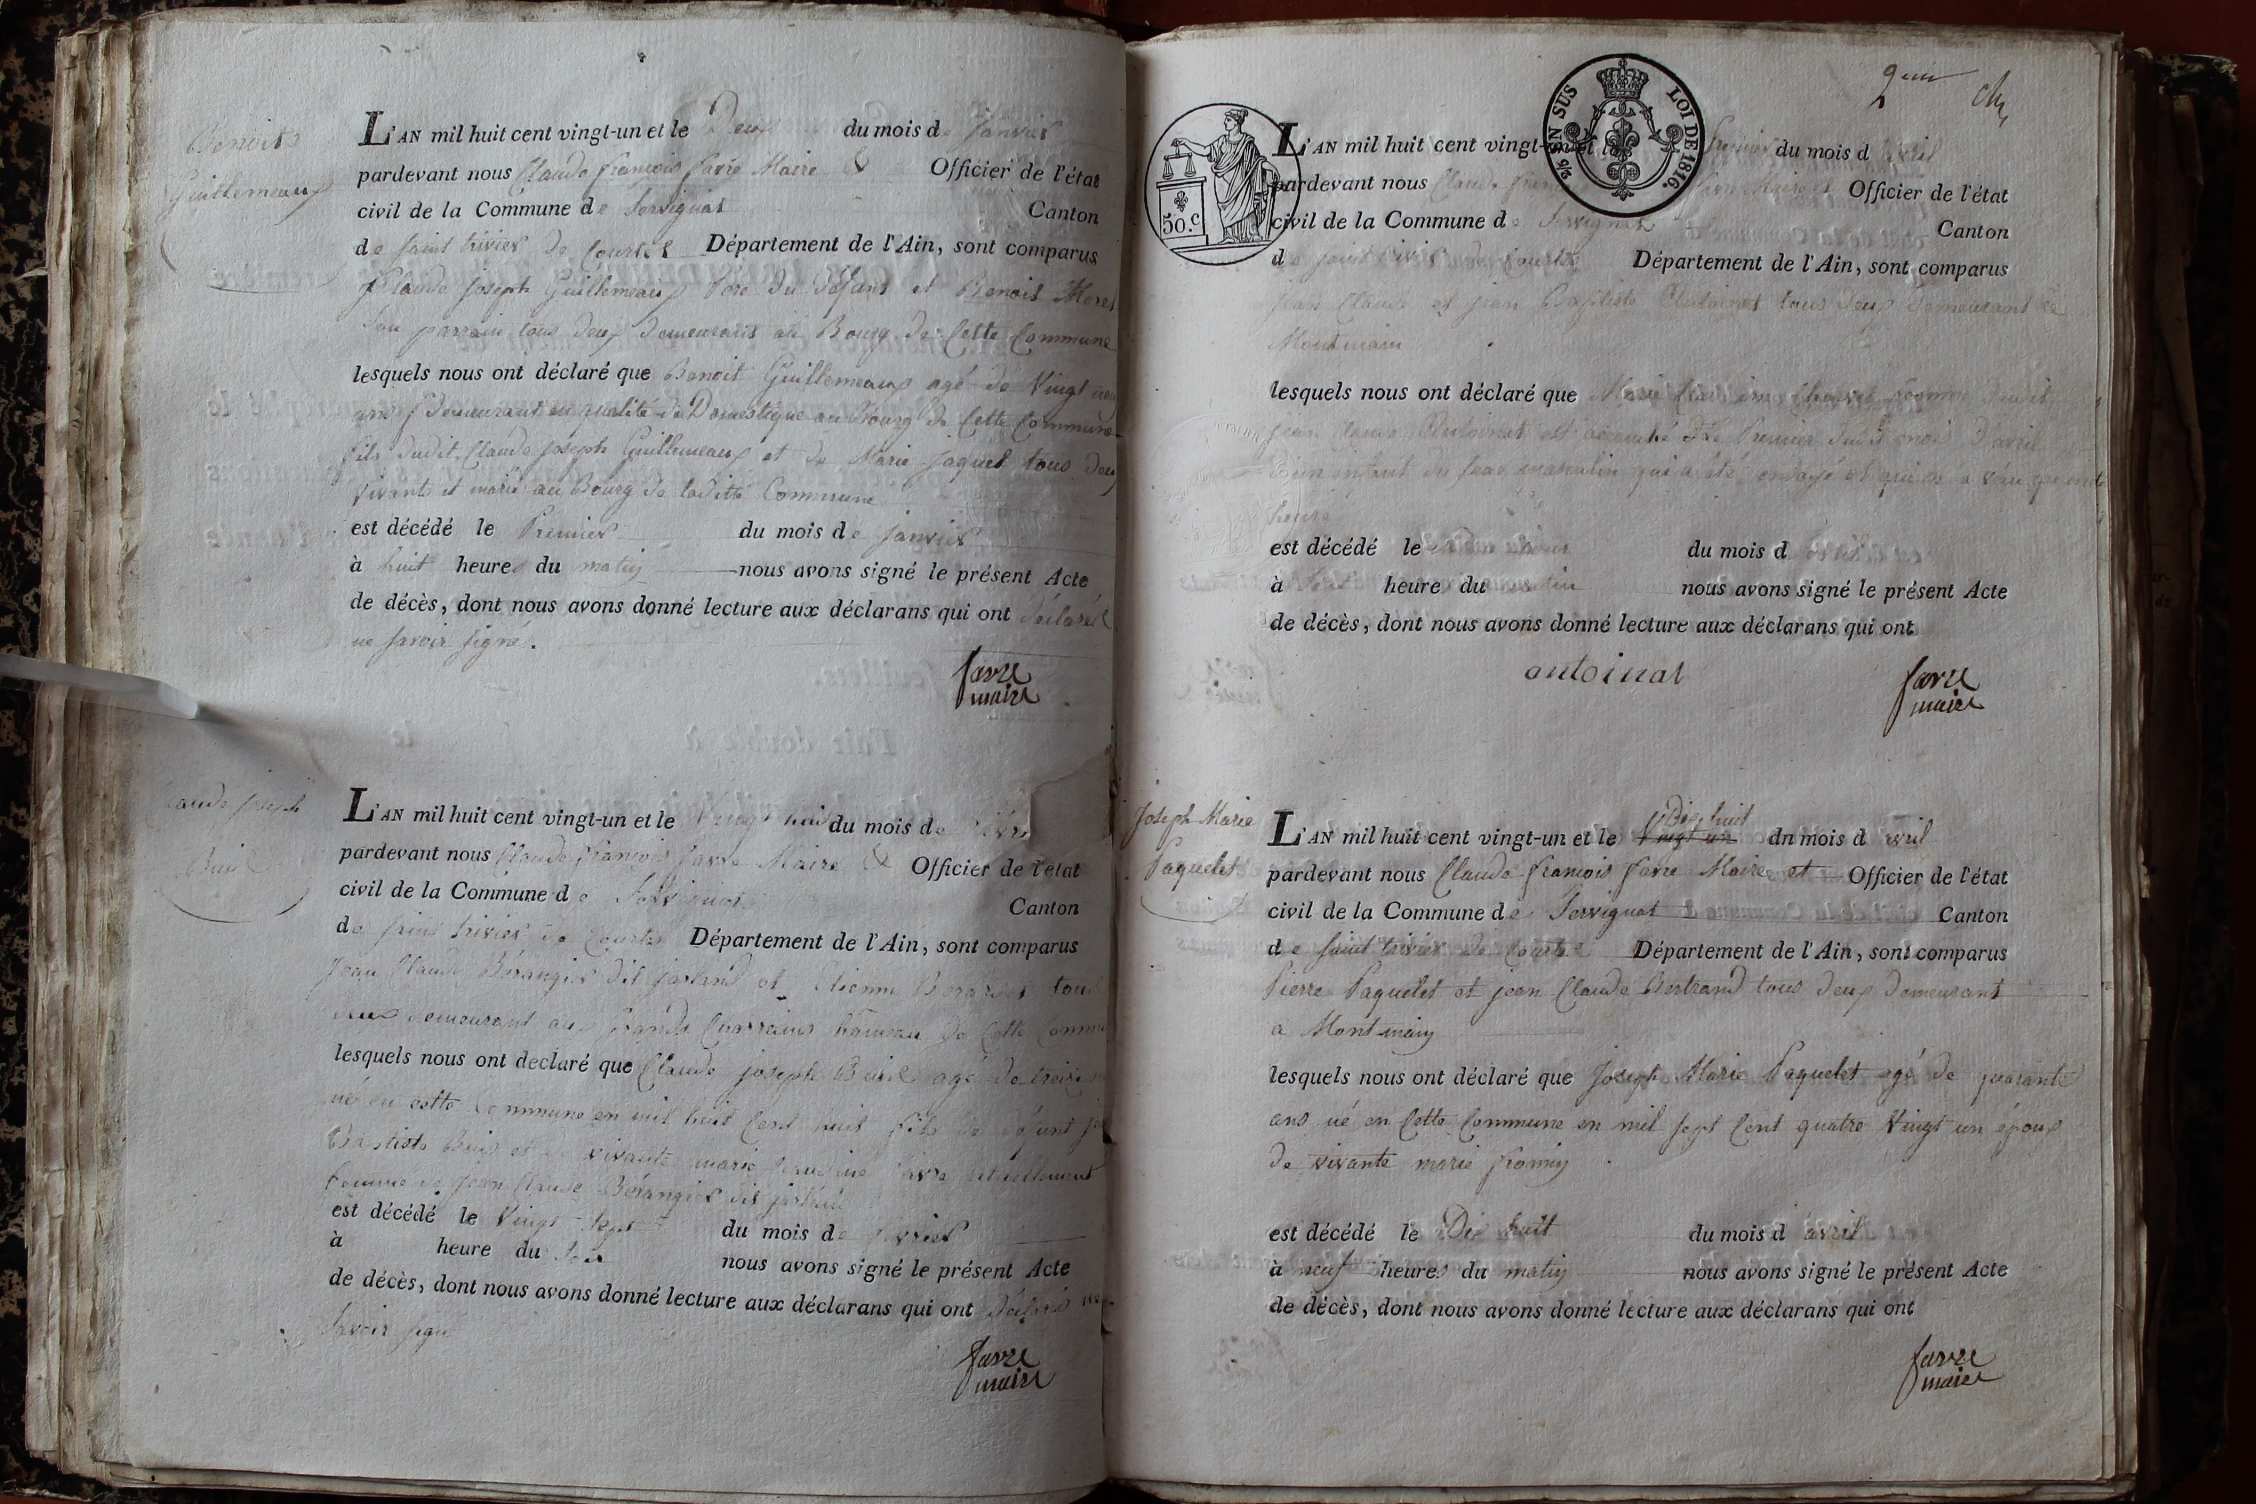 Benoit
Guillemeaux
L'AN mil huit cent vingt-un et le Deux du mois de Janvier
pardevant nous Claude françois favre Maire & Officier de l'état
civil de la Commune de Servignat Canton
de saint trivier de Courtes Département de l'Ain, sont comparus
Claude Joseph Guillemeaux Père du défunt et Benoit Morel
son parrain tous deux demeurants au Bourg de Cette Commune
lesquels nous ont déclaré que Benoit Guillemeaux agé de Vingt
ans demeurant en qualité de Domestique au Bourg de Cette Commune
fils dudit Claude Joseph Guillemeaux et de Marie jaquet tous deux
vivants et marié au Bourg de laditte Commune
est décédé le Premier du mois de janvier
à huit heures du matin nous avons signé le présent Acte
de décès, dont nous avons donné lecture aux déclarans qui ont déclaré
ne savoir signé.
favre
maire
Claude Joseph
Buis
L'AN mil huit cent vingt-un et le Vingt huit du mois de févri
pardevant nous Claude françois favre Maire & Officier de l'état
civil de la Commune de Servignat Canton
de saint trivier de Courtes Département de l'Ain, sont comparus
Jean Claude Bérangier dit et Etienne tous
deux demeurant aux grands hameau de Cette Commu
lesquels nous ont declaré que Claude joseph Buis agé de treize
né en cette Commune en mil huit Cent huit fils de défunt
Baptiste Buis et de vivante marie favre actuellement
femme de Jean Claude Bérangier dit
est décédé le Vingt Sept du mois de février
à heure du soir nous avons signé le présent Acte
de décès, dont nous avons donné lecture aux déclarans qui ont déclaré ne
savoir signé
favre
maire
2em
50.c
EN SUS LOI DE 1816.
L'AN mil huit cent vingt-un et le Premier du mois d avril
pardevant nous Claude fran Maire et Officier de l'état
civil de la Commune de Servignat Canton
de saint trivier de Courtes Département de l'Ain, sont comparus
Jean Claude et jean Baptiste Antoinat tous deux demeurant à
Montmain
lesquels nous ont déclaré que Marie femme dudit
jean claude Antoinat est accouché le Premier dudit mois d'avril
d'un enfant du sexe masculin qui a été ondoyé et qui n'a vécu qu'une
heure
est décédé le du mois d
à heure du matin nous avons signé le présent Acte
de décès, dont nous avons donné lecture aux déclarans qui ont
antoinat
favre
maire
Joseph Marie
Paquelet
Dix huit
L'AN mil huit cent vingt-un et le Vingt un dn mois d avril
pardevant nous Claude françois favre Maire et Officier de l'état
civil de la Commune de Servignat Canton
de saint trivier de Courtes Département de l'Ain, sont comparus
Pierre Paquelet et jean Claude Bertrand tous deux demeurant
a Montmain
lesquels nous ont déclaré que Joseph Marie Paquelet agé de quarante
ans né en Cette Commune en mil sept Cent quatre Vingt un époux
de vivante marie fromin
est décédé le Dix huit du mois d avril
à neuf heures du matin nous avons signé le présent Acte
de décès, dont nous avons donné lecture aux déclarans qui ont
favre
maire